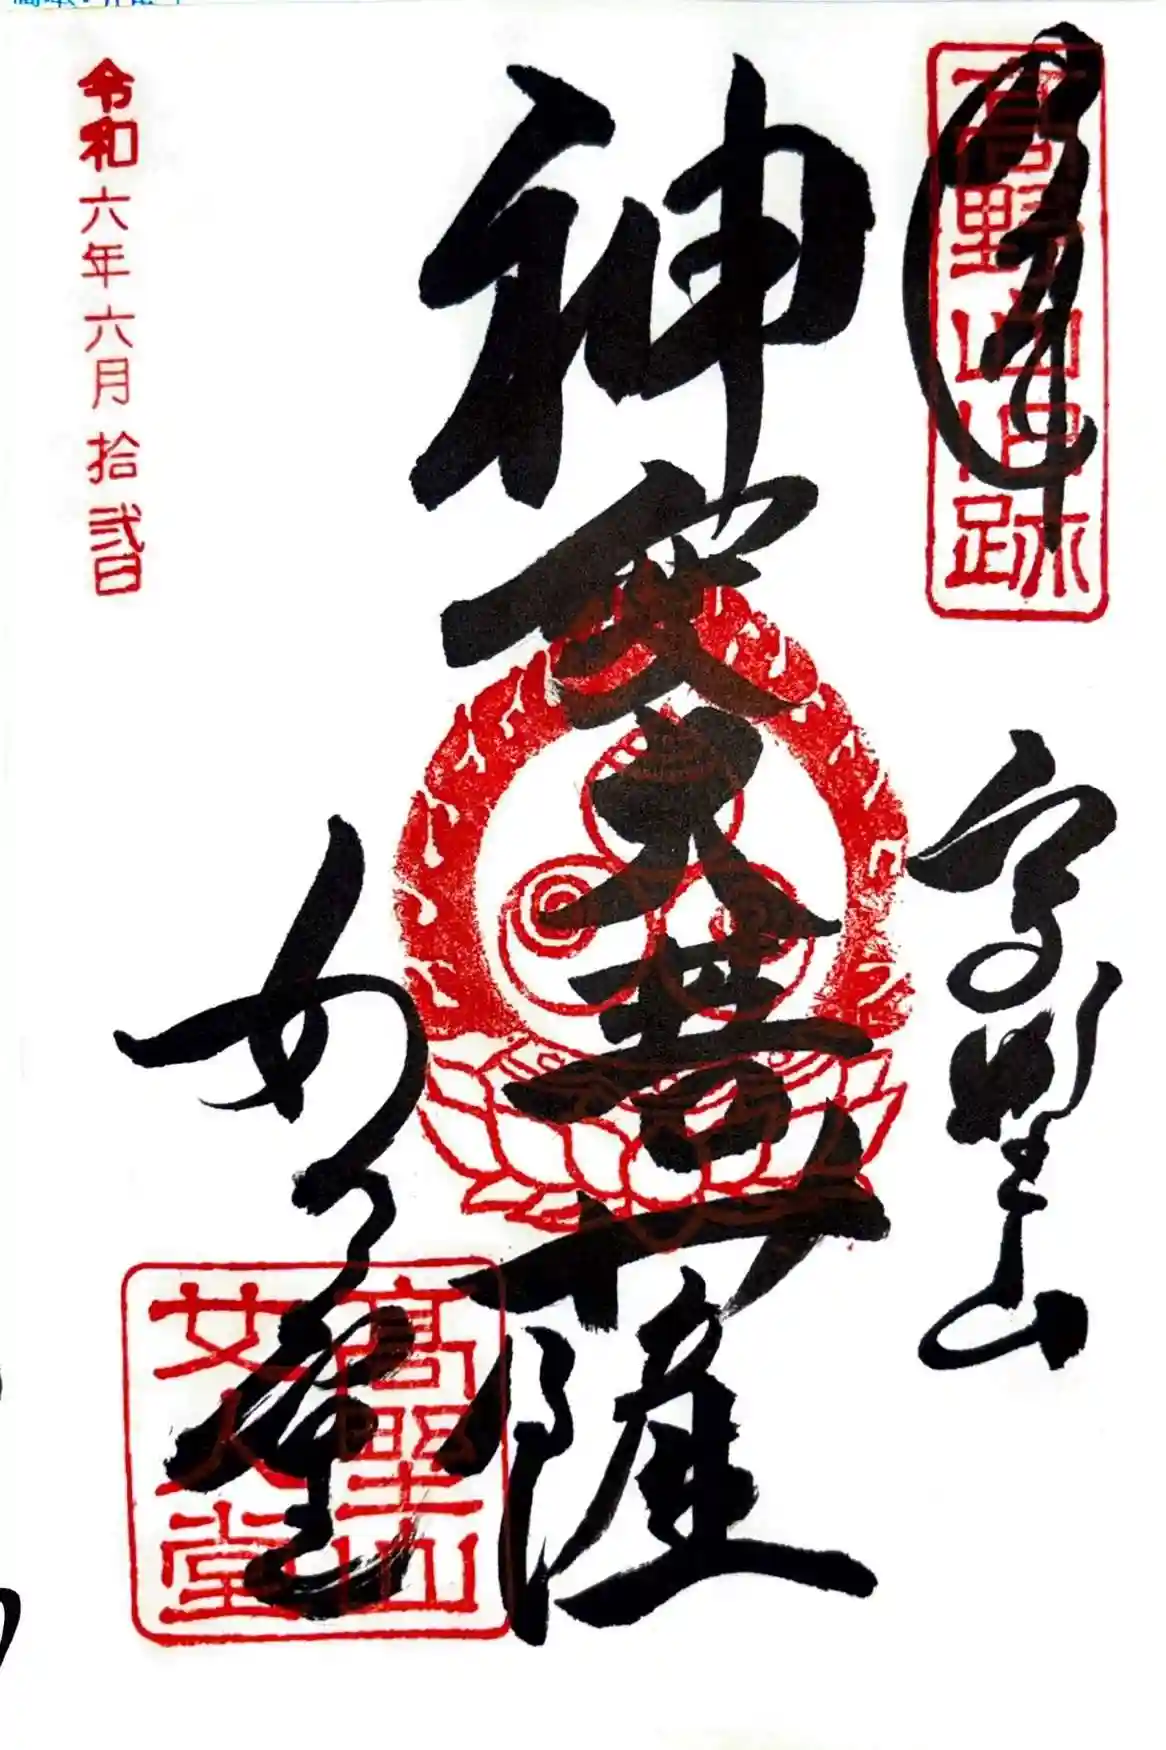 奉拝
高野山旧跡
高野山
神変大菩薩
女人堂
高野山
女人堂
令和六年六月拾弐日